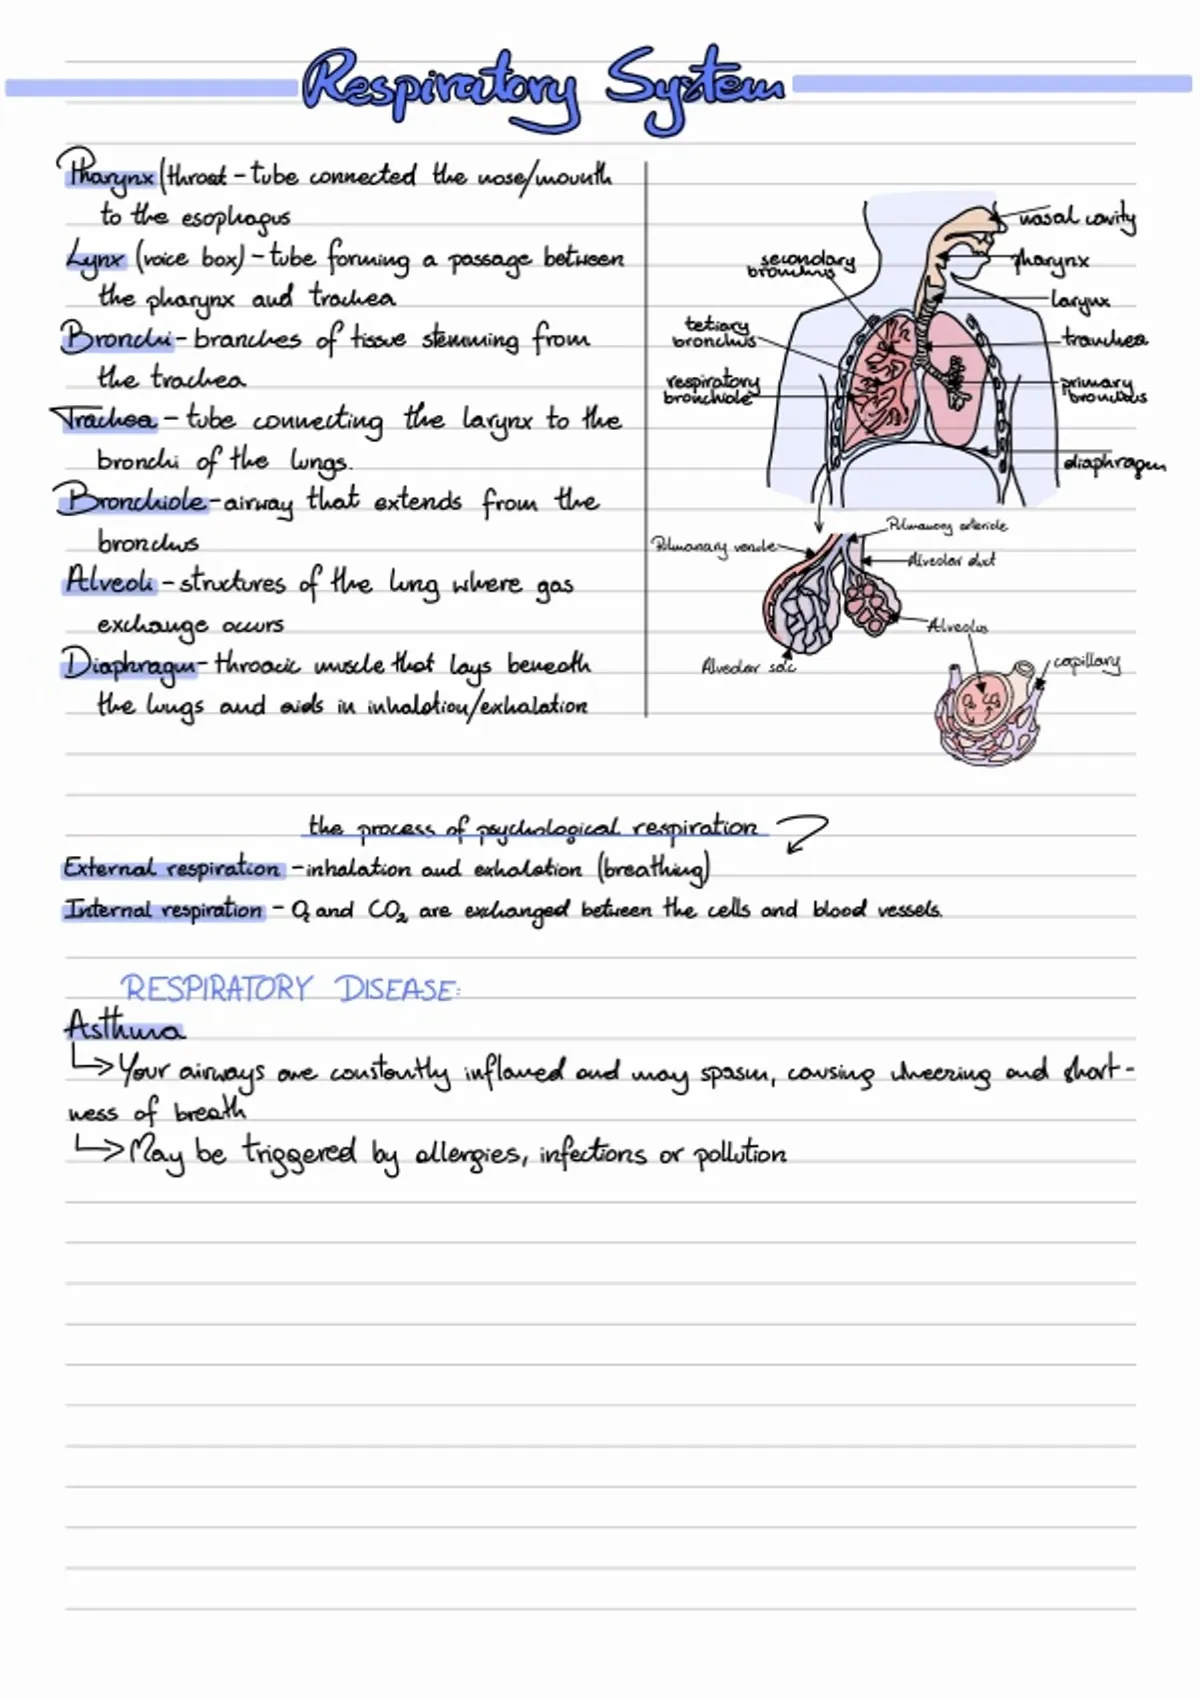 Respiratory System
Pharynx (throat - tube connected the nose/mounth
to the esophagus
Lynx (voice box) - tube forming a passage between
the pharynx and trachea
Bronchi - branches of tissue stemming from
the trachea
Trachea - tube connecting the larynx to the
bronchi of the lungs.
Bronchiole - airway that extends from the
bronchus
Alveoli - structures of the lung where gas
exchange occurs
Diaphragm - throacic muscle that lays beneath
the lungs and aids in inhalation/exhalation
nasal cavity
pharynx
larynx
trauchea
primary
bronchus
diaphragm
secondary
bronchus
tetiary
bronchus
respiratory
bronchiole
Pulmonary arteriole
Alveolar duct
Alveolus
capillary
O₂ CO₂
the process of psychological respiration
External respiration - inhalation and exhalation (breathing)
Internal respiration - O₂ and CO₂ are exchanged between the cells and blood vessels.
RESPIRATORY DISEASE:
Asthma
↳ Your airways are constantly inflamed and may spasm, causing wheezing and short-
ness of breath
↳ May be triggered by allergies, infections or pollution